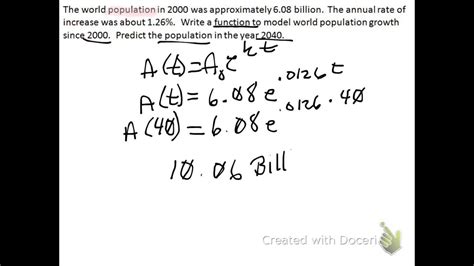 The world population in 2000 was approximately 6.08 billion. The annual rate of
increase was about 1.26%. Write a function to model world population growth
since 2000. Predict the population in the year 2040.
A(t)=A₀e^kt
A(t)=6.08e^.0126t
A(40)=6.08e^.0126·40
10.06 Bill
Created with Doceri